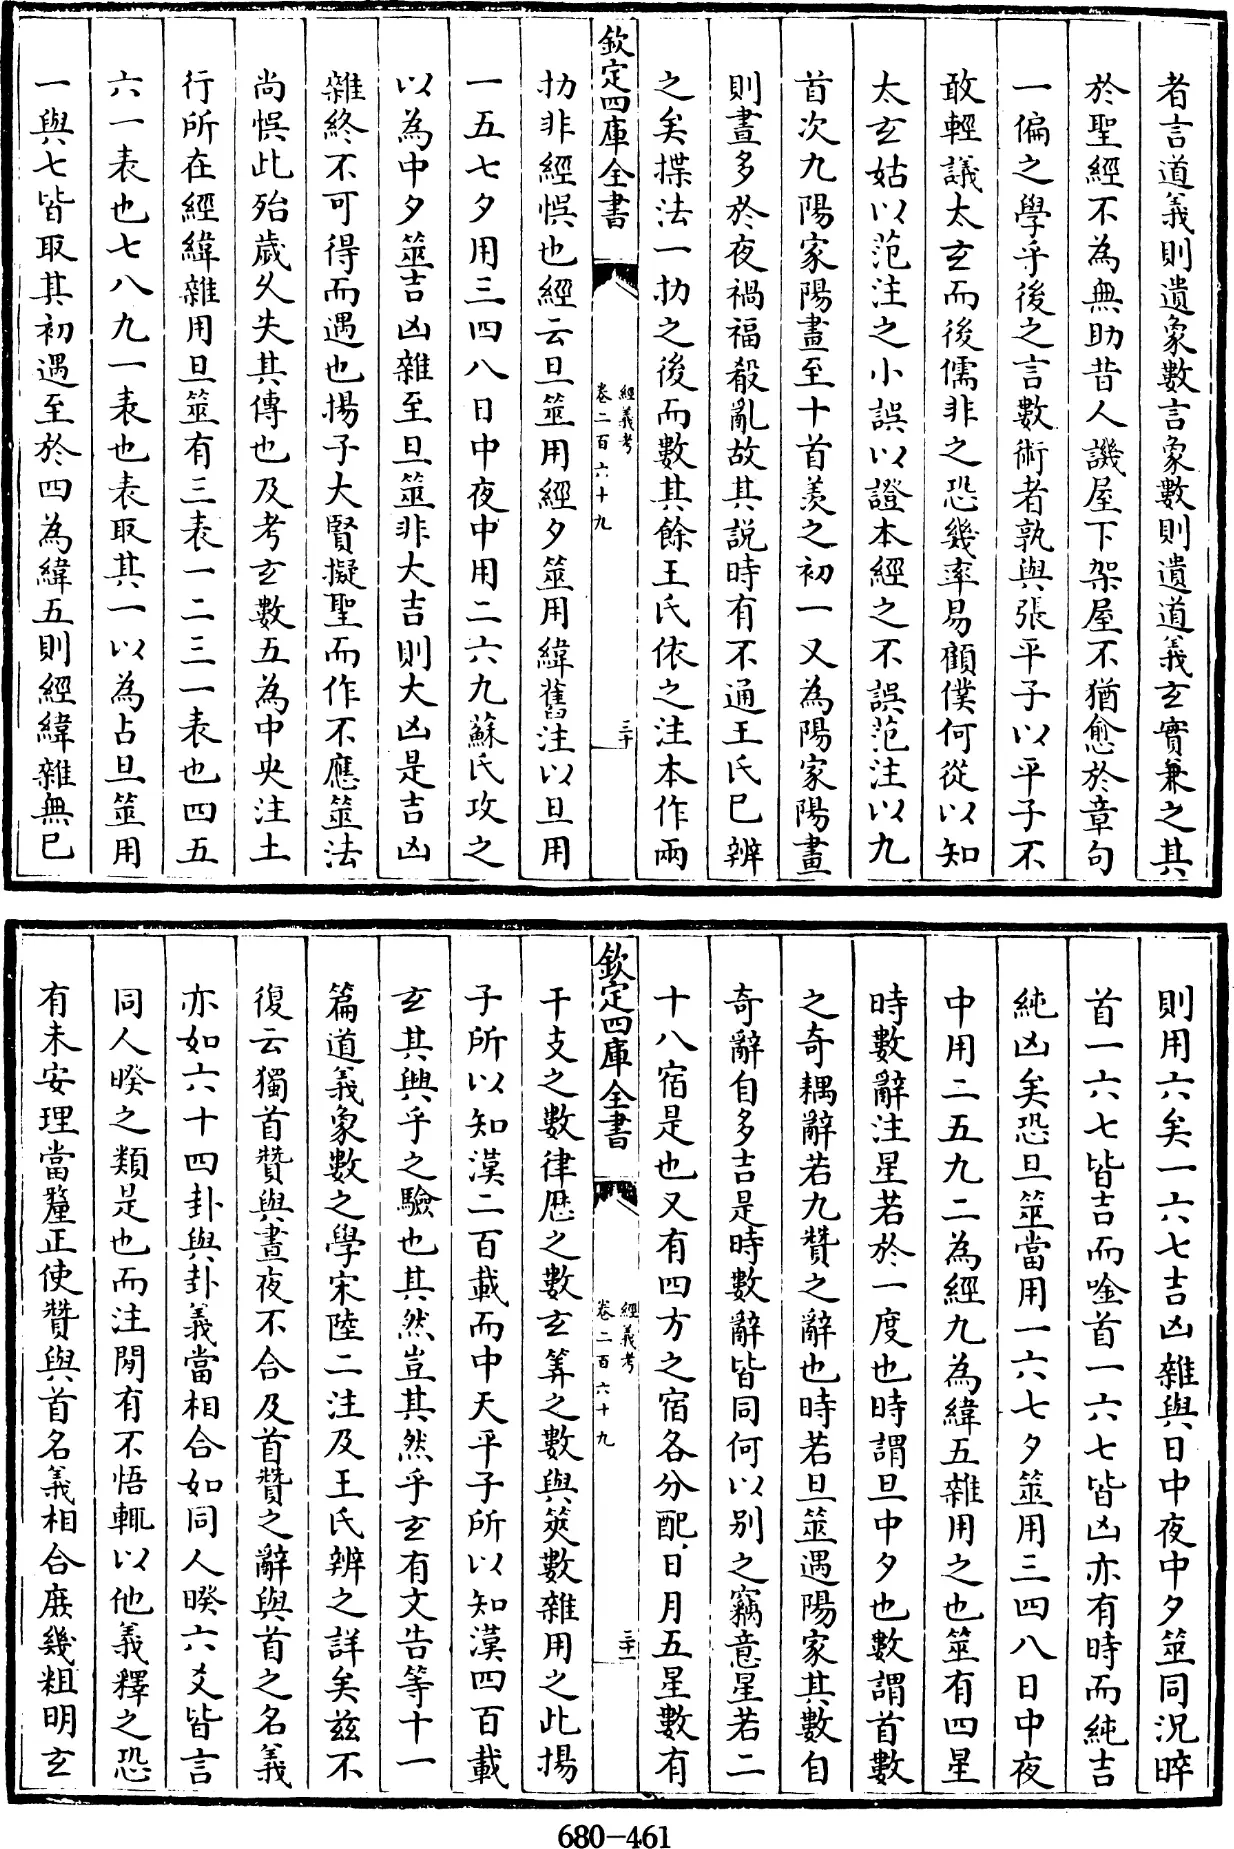 者言道義則遺象數言象數則遺道義玄實兼之其
於聖經不為無助昔人譏屋下架屋不猶愈於章句
一偏之學乎後之言數術者孰與張平子以平子不
敢輕議太玄而後儒非之恐幾率易顧僕何從以知
太玄姑以范注之小誤以證本經之不誤范注以九
首次九陽家陽畫至十首羨之初一又為陽家陽畫
則晝多於夜禍福殽亂故其説時有不通王氏已辨
之矣揲法一扐之後而數其餘王氏依之注本作兩
欽定四庫全書
經義考
卷二百六十九
三十
扐非經悮也經云旦筮用經夕筮用緯舊注以旦用
一五七夕用三四八日中夜中用二六九蘇氏攻之
以為中夕筮吉凶雜至旦筮非大吉則大凶是吉凶
雜終不可得而遇也揚子大賢擬聖而作不應筮法
尚悮此殆歲久失其傳也及考玄數五為中央注土
行所在經緯雜用旦筮有三表一二三一表也四五
六一表也七八九一表也表取其一以為占旦筮用
一與七皆取其初遇至於四為緯五則經緯雜無已
則用六矣一六七吉凶雜與日中夜中夕筮同況睟
首一六七皆吉而唫首一六七皆凶亦有時而純吉
純凶矣恐旦筮當用一六七夕筮用三四八日中夜
中用二五九二為經九為緯五雜用之也筮有四星
時數辭注星若於一度也時謂旦中夕也數謂首數
之奇耦辭若九贊之辭也時若旦筮遇陽家其數自
奇辭自多吉是時數辭皆同何以别之竊意星若二
十八宿是也又有四方之宿各分配日月五星數有
欽定四庫全書
經義考
卷二百六十九
三十一
干支之數律厯之數玄筭之數與筴數雜用之此揚
子所以知漢二百載而中天平子所以知漢四百載
玄其興乎之驗也其然豈其然乎玄有文告等十一
篇道義象數之學宋陸二注及王氏辨之詳矣兹不
復云獨首贊與晝夜不合及首贊之辭與首之名義
亦如六十四卦與卦義當相合如同人暌六爻皆言
同人暌之類是也而注閒有不悟輒以他義釋之恐
有未安理當釐正使贊與首名義相合庶幾粗明玄
680-461